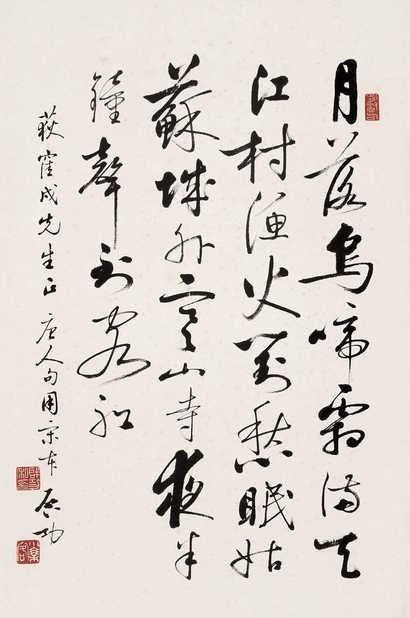 月落烏啼霜滿天
江村漁火對愁眠姑
蘇城外寒山寺夜半
鐘聲到客船
荻成先生正 唐人句用宋本 启功